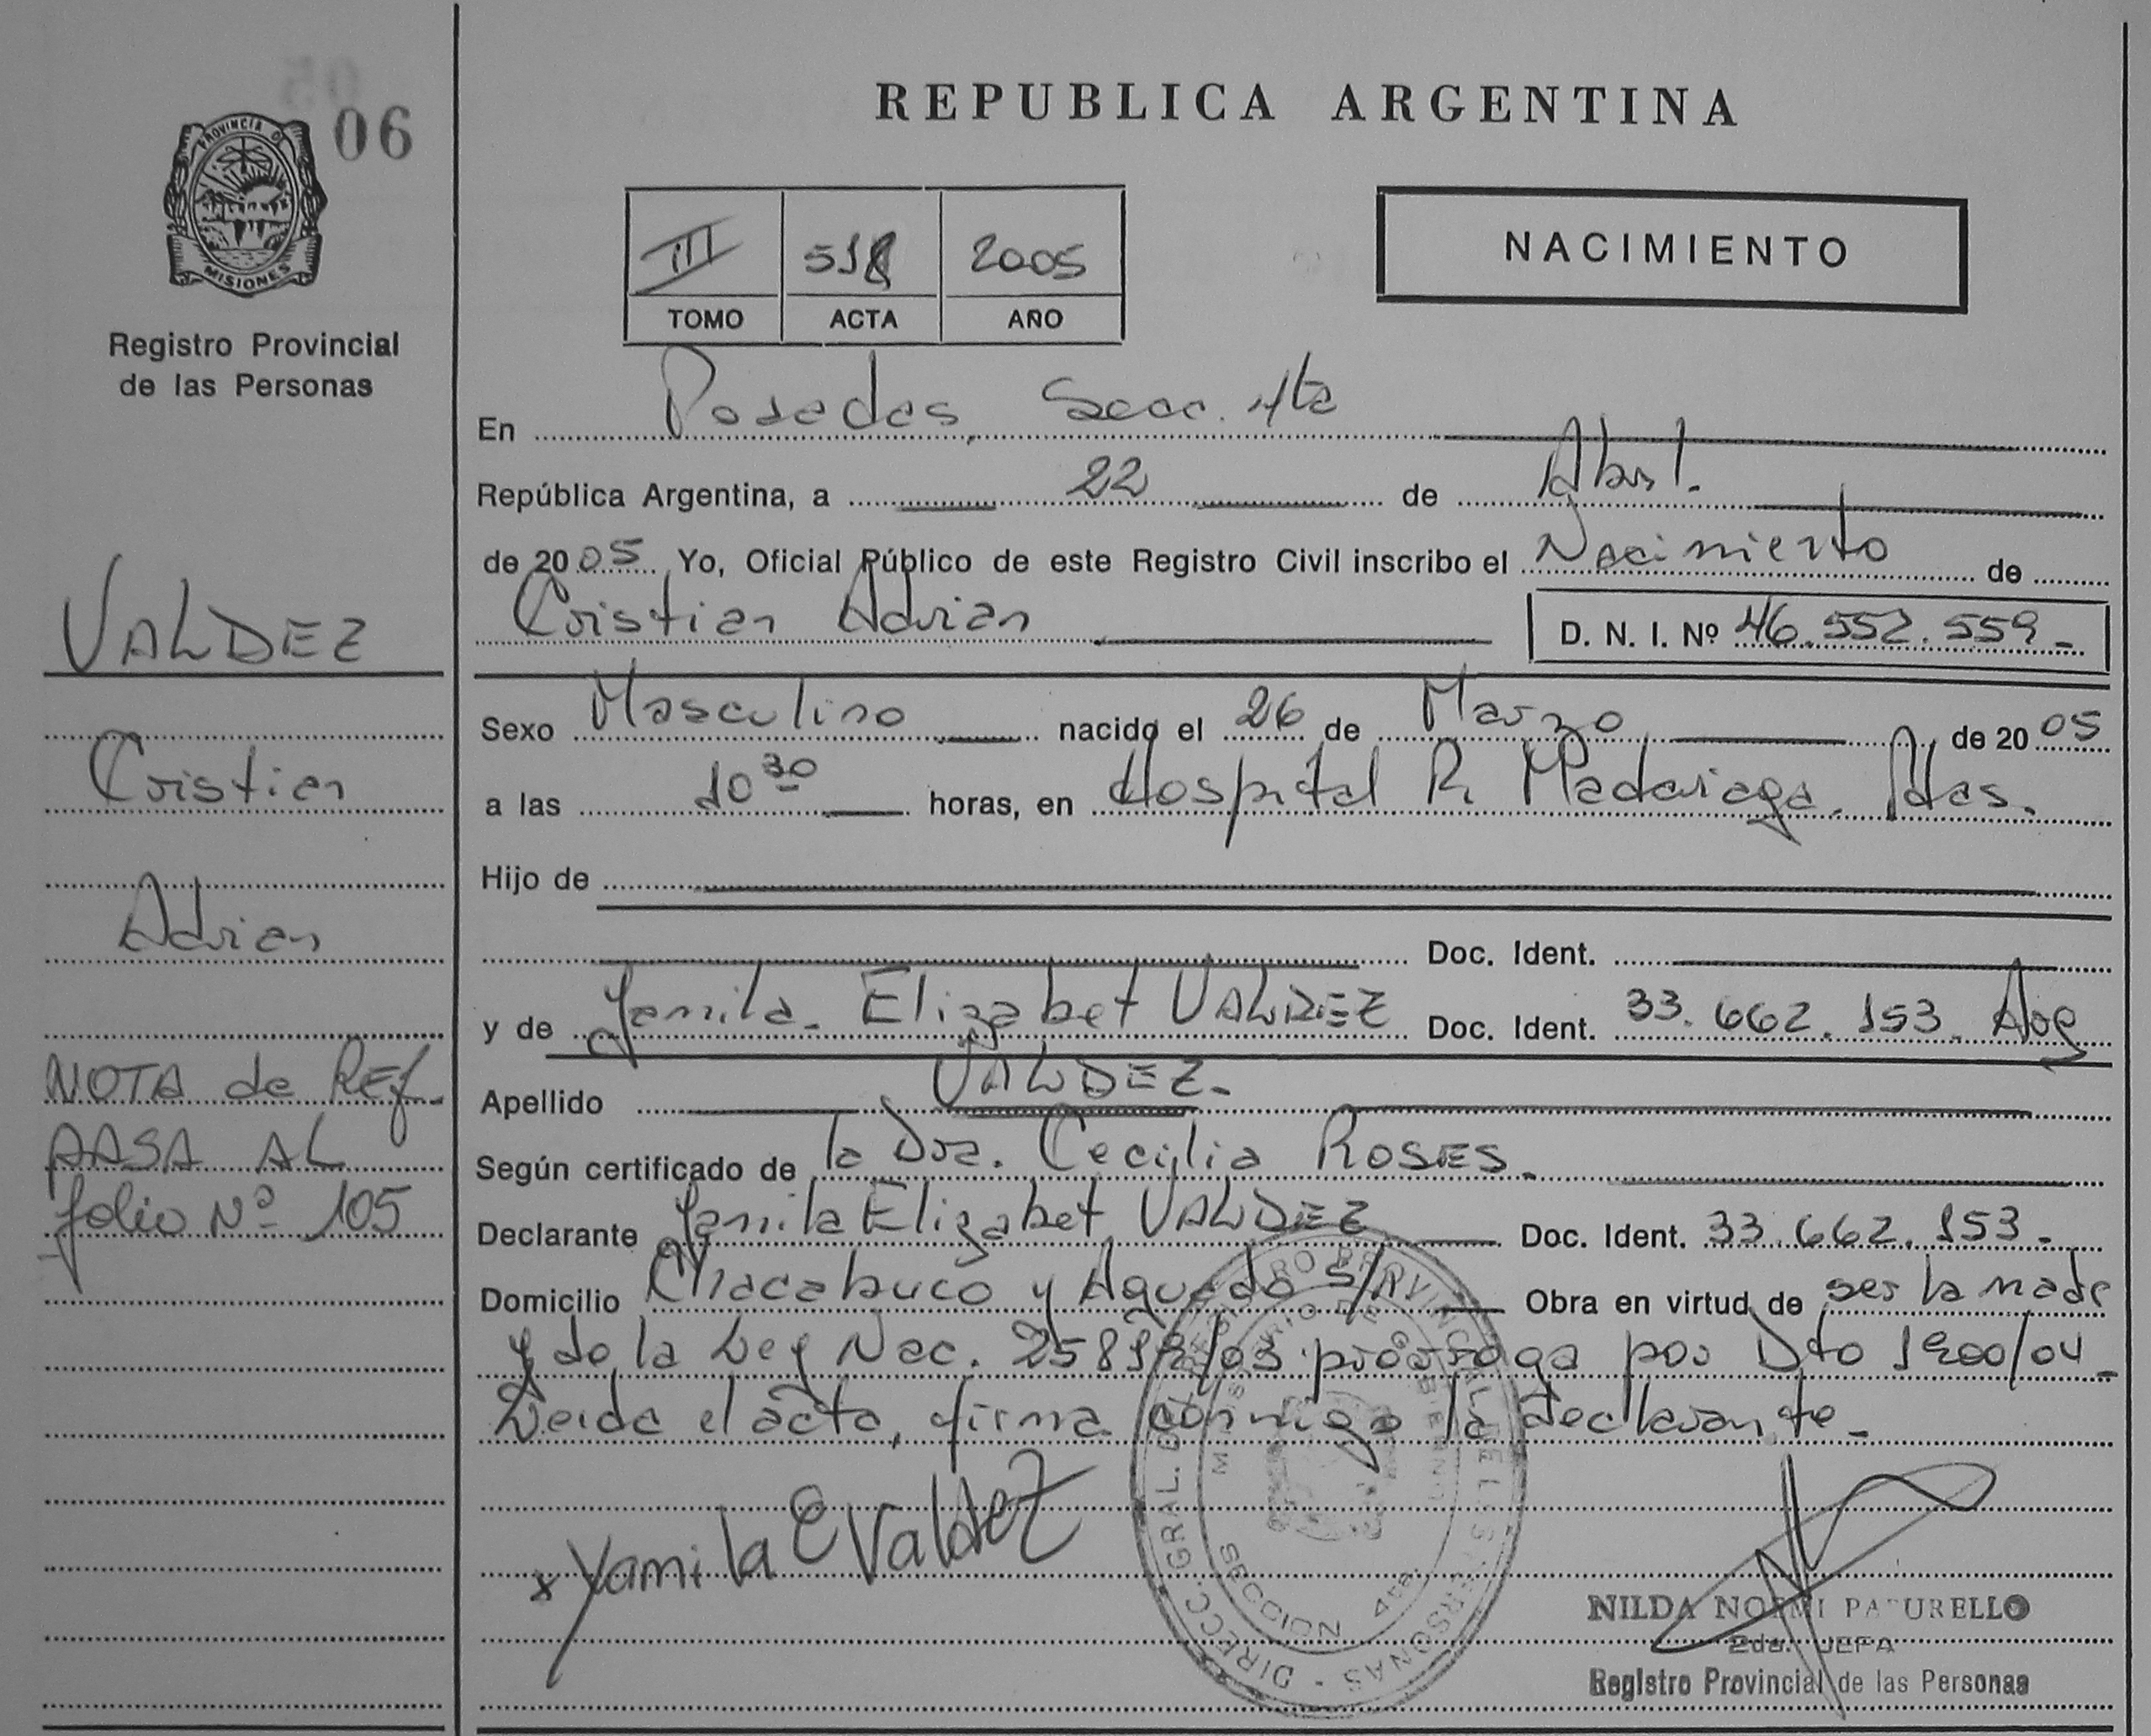 06
PROVINCIA DE
MISIONES
Registro Provincial
de las Personas
VALDEZ
Cristian
Adrian
NOTA de REf.
PASA AL
folio Nº 105
REPUBLICA ARGENTINA
III 2005
TOMO ACTA AÑO
NACIMIENTO
En Posadas, Secc. 4ta
República Argentina, a 22 de Abril.
de 2005. Yo, Oficial Público de este Registro Civil inscribo el Nacimiento de
Cristian Adrian D. N. I. Nº 46.552.559-
Sexo Masculino nacido el 26 de Marzo de 2005
a las 10 30 horas, en Hospital R. Madariaga. Pdas.
Hijo de
Doc. Ident.
y de Yamila Elizabet VALDEZ Doc. Ident. 33.662.153. Arg
Apellido VALDEZ-
Según certificado de la Dra. Cecilia ROSES.
Declarante Yamila Elizabet VALDEZ Doc. Ident. 33.662.153-
Domicilio Chacabuco y Aguado S/N Obra en virtud de ser la madre
y de la Ley Nac. prórroga por Dto 1900/04-
Leida el acta, firma conmigo la declarante-
x Yamila E Valdez
DIRECC. GRAL. DEL REGISTRO PROVINCIAL DE LAS PERSONAS
MINISTERIO DE GOBIERNO
SECCION 4ta.
NILDA NOEMI PATURELLO
2da. JEFA
Registro Provincial de las Personas